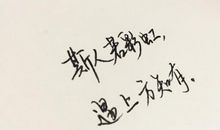 斯人若彩虹,
遇上方知有.